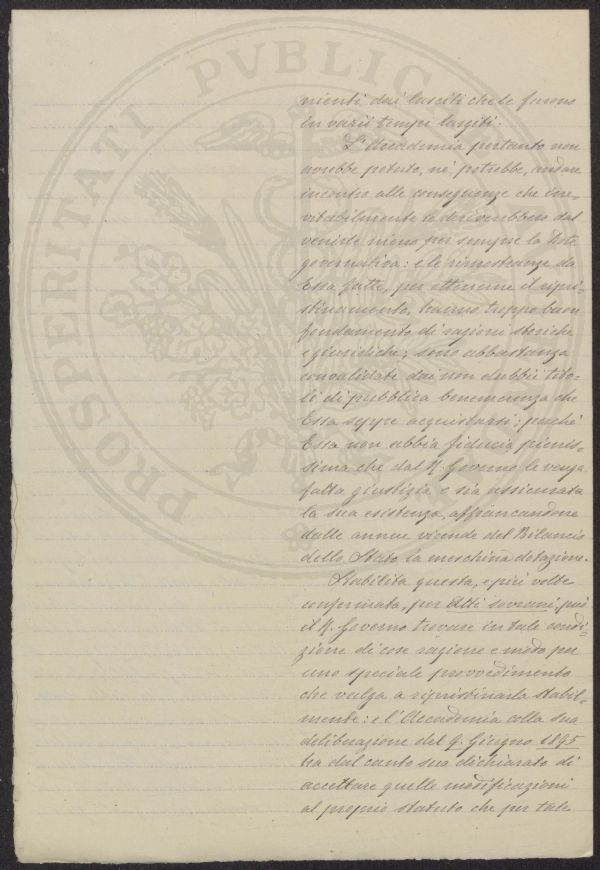 PROSPERITATI PVBLICA
nienti dai lasciti che le furono
in varii tempi largiti.
L'Accademia pertanto non
avrebbe potuto, nè potrebbe, andare
incontro alle conseguenze che ine-
vitabilmente le deriverebbero dal
venirle meno per sempre la Dote
governativa: e le rimostranze da
Essa fatte, per ottenerne il ripri-
stinamento, hanno troppo buon
fondamento di ragioni storiche
e giuridiche; sono abbastanza
convalidate dai non dubbii tito-
li di pubblica benemerenza che
Essa seppe acquistarsi; perché
Essa non abbia fiducia pienis-
sima che dal R. Governo le venga
fatta giustizia e sia assicurata
la sua esistenza, affrancandone
dalle annue vicende del Bilancio
dello Stato la meschina dotazione.
Stabilita questa, e più volte
confermata, per Atti sovrani, può
il R. Governo trovare in tale condi-
zione di cose ragione e modo per
uno speciale provvedimento
che valga a ripristinarla stabil-
mente: e l'Accademia colla sua
deliberazione del 9. Giugno 1895
ha dal canto suo dichiarato di
accettare quelle modificazioni
al proprio statuto che per tale